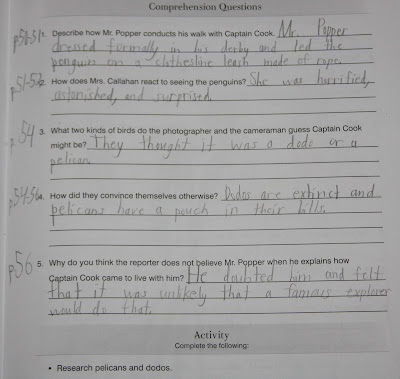 Comprehension Questions
p50-51 1. Describe how Mr. Popper conducts his walk with Captain Cook. Mr. Popper
dressed formally in his derby and led the
penguin on a clothesline leash made of rope.
p51-52 2. How does Mrs. Callahan react to seeing the penguins? She was hurrified,
astonished, and surprised.
p54 3. What two kinds of birds do the photographer and the cameraman guess Captain Cook
might be? They thought it was a dodo or a
pelican.
p54-56 4. How did they convince themselves otherwise? Dodos are extinct and
pelicans have a pouch in their bills.
p56 5. Why do you think the reporter does not believe Mr. Popper when he explains how
Captain Cook came to live with him? He doubted him and felt
that it was unlikely that a famous explorer
would do that.
Activity
Complete the following:
• Research pelicans and dodos.